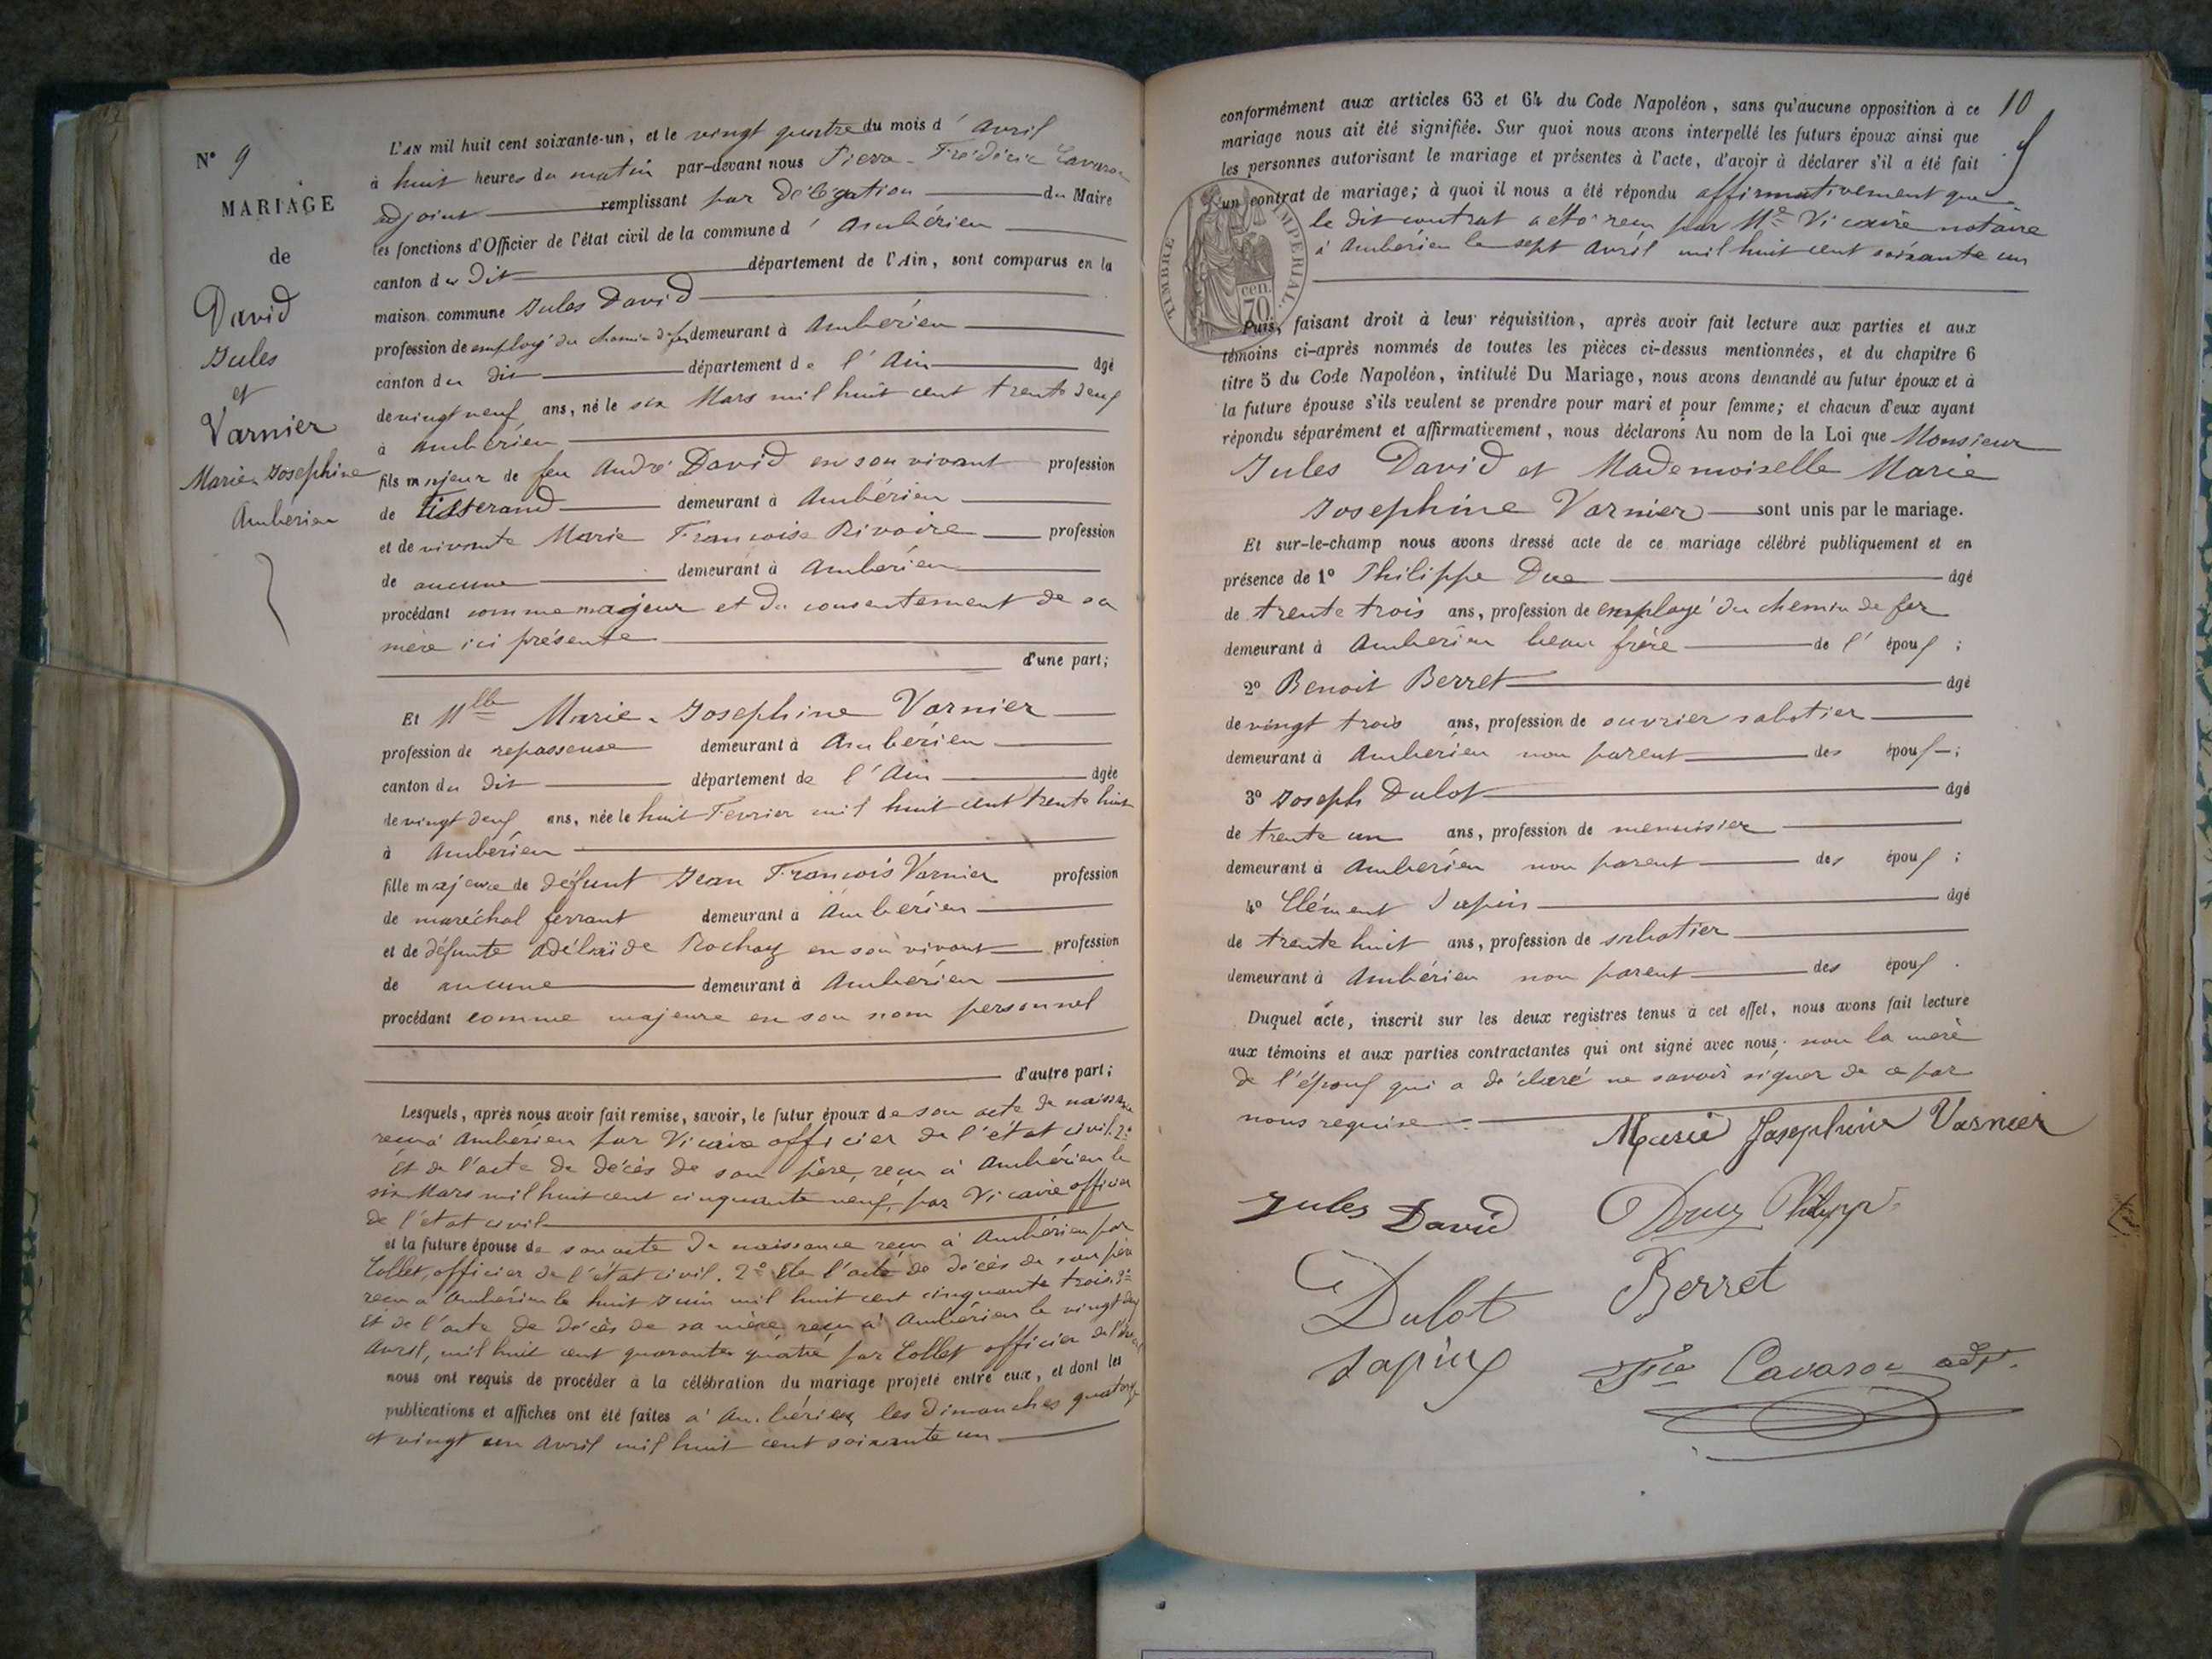 N° 9
MARIAGE
de
David
Jules
et
Varnier
Marie-Josephine
Ambérieu
L'AN mil huit cent soixante-un, et le vingt quatre du mois d'Avril
à huit heures du matin par-devant nous Pierre-Frédéric Cavaron
adjoint remplissant par délégation du Maire
les fonctions d'Officier de l'état civil de la commune d'Ambérieu
canton du dit département de l'Ain, sont comparus en la
maison commune Jules David
profession de employé du chemin de fer demeurant à Ambérieu
canton du dit département de l'Ain âgé
de vingt neuf ans, né le six Mars mil huit cent trente deux
à Ambérieu
fils majeur de feu André David en son vivant profession
de tisserand demeurant à Ambérieu
et de vivante Marie Françoise Rivoire profession
de aucune demeurant à Ambérieu
procédant comme majeur et du consentement de sa
mère ici présente
d'une part;
Et Mlle Marie-Josephine Varnier
profession de repasseuse demeurant à Ambérieu
canton du dit département de l'Ain âgée
de vingt deux ans, née le huit Fevrier mil huit cent trente huit
à Ambérieu
fille majeure de défunt Jean François Varnier profession
de maréchal ferrant demeurant à Ambérieu
et de défunte Adélaïde Rochay en son vivant profession
de aucune demeurant à Ambérieu
procédant comme majeure en son nom personnel
d'autre part;
Lesquels, après nous avoir fait remise, savoir, le futur époux de son acte de naissance
reçu à Ambérieu par Vicaire officier de l'état civil. 2°
Et de l'acte de décès de son père, reçu à Ambérieu le
six Mars mil huit cent cinquante neuf, par Vicaire officier
de l'état civil
et la future épouse de son acte de naissance reçu à Ambérieu par
Collet, officier de l'état civil. 2° De l'acte de décès de son père
reçu à Ambérieu le huit Juin mil huit cent cinquante trois. 3°
Et de l'acte de décès de sa mère, reçu à Ambérieu le vingt deux
Avril, mil huit cent quarante quatre par Collet officier de l'état civil
nous ont requis de procéder à la célébration du mariage projeté entre eux, et dont les
publications et affiches ont été faites à Ambérieu, les dimanches quatorze
et vingt un Avril mil huit cent soixante un
10
conformément aux articles 63 et 64 du Code Napoléon, sans qu'aucune opposition à ce
mariage nous ait été signifiée. Sur quoi nous avons interpellé les futurs époux ainsi que
les personnes autorisant le mariage et présentes à l'acte, d'avoir à déclarer s'il a été fait
un contrat de mariage; à quoi il nous a été répondu affirmativement que
le dit contrat a été reçu par Me Vicaire notaire
à Ambérieu le sept Avril mil huit cent soixante un
TIMBRE IMPERIAL.
70 cen.
Puis, faisant droit à leur réquisition, après avoir fait lecture aux parties et aux
témoins ci-après nommés de toutes les pièces ci-dessus mentionnées, et du chapitre 6
titre 5 du Code Napoléon, intitulé Du Mariage, nous avons demandé au futur époux et à
la future épouse s'ils veulent se prendre pour mari et pour femme; et chacun d'eux ayant
répondu séparément et affirmativement, nous déclarons Au nom de la Loi que Monsieur
Jules David et Mademoiselle Marie
Josephine Varnier sont unis par le mariage.
Et sur-le-champ nous avons dressé acte de ce mariage célébré publiquement et en
présence de 1° Philippe Due âgé
de trente trois ans, profession de employé du chemin de fer
demeurant à Ambérieu beau frère de l'époux;
2° Benoit Berret âgé
de vingt trois ans, profession de ouvrier sabotier
demeurant à Ambérieu non parent des époux;
3° Joseph Dulot âgé
de trente un ans, profession de menuisier
demeurant à Ambérieu non parent des époux;
4° Clément Sapin âgé
de trente huit ans, profession de sabotier
demeurant à Ambérieu non parent des époux.
Duquel acte, inscrit sur les deux registres tenus à cet effet, nous avons fait lecture
aux témoins et aux parties contractantes qui ont signé avec nous; non la mère
de l'époux qui a déclaré ne savoir signer de ce par
nous requise
Marie Josephine Varnier
Jules David
Philipp
Dulot
Berret
Sapin
Cavaron adjt.